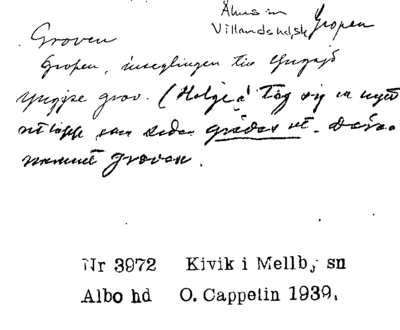 Åhus sn
Villands hd sk Gropen
Groven
Gropen, inseglingen till Yngsjö
grov. (Helgeå tog sig en nytt
utlopp som sedan grävdes ut. Därav
namnet Groven.
Nr 3972 Kivik i Mellby sn
Albo hd O. Cappelin 1939.